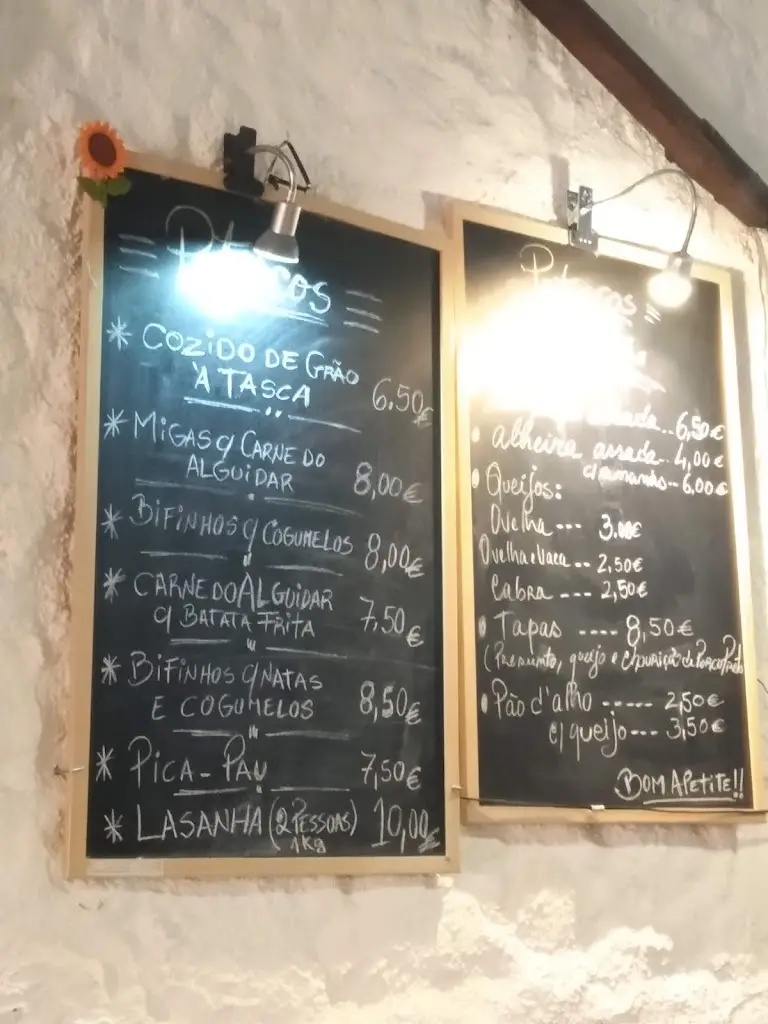 COZIDO DE GRÃO
À TASCA 6.50€
MIGAS C/ CARNE DO
ALGUIDAR 8,00€
BIFINHOS C/ COGUMELOS 8,00€
CARNE DO ALGUIDAR
C/ BATATA FRITA 7.50€
BIFINHOS C/ NATAS
E COGUMELOS 8,50€
PICA-PAU 7,50€
LASANHA (2 PESSOAS) 10,00€
1Kg
assada.. 6,50€
alheira assada.. 4,00€
c/ ananás.. 6,00€
Queijos:
Ovelha --- 3.00€
Ovelha e Vaca .. 2,50€
Cabra ---- 2,50€
Tapas ---- 8,50€
(Presunto, queijo e chouriça de Porco Preto
Pão d'alho ----- 2,50€
c/ queijo--- 3,50€
BOM APETITE!!